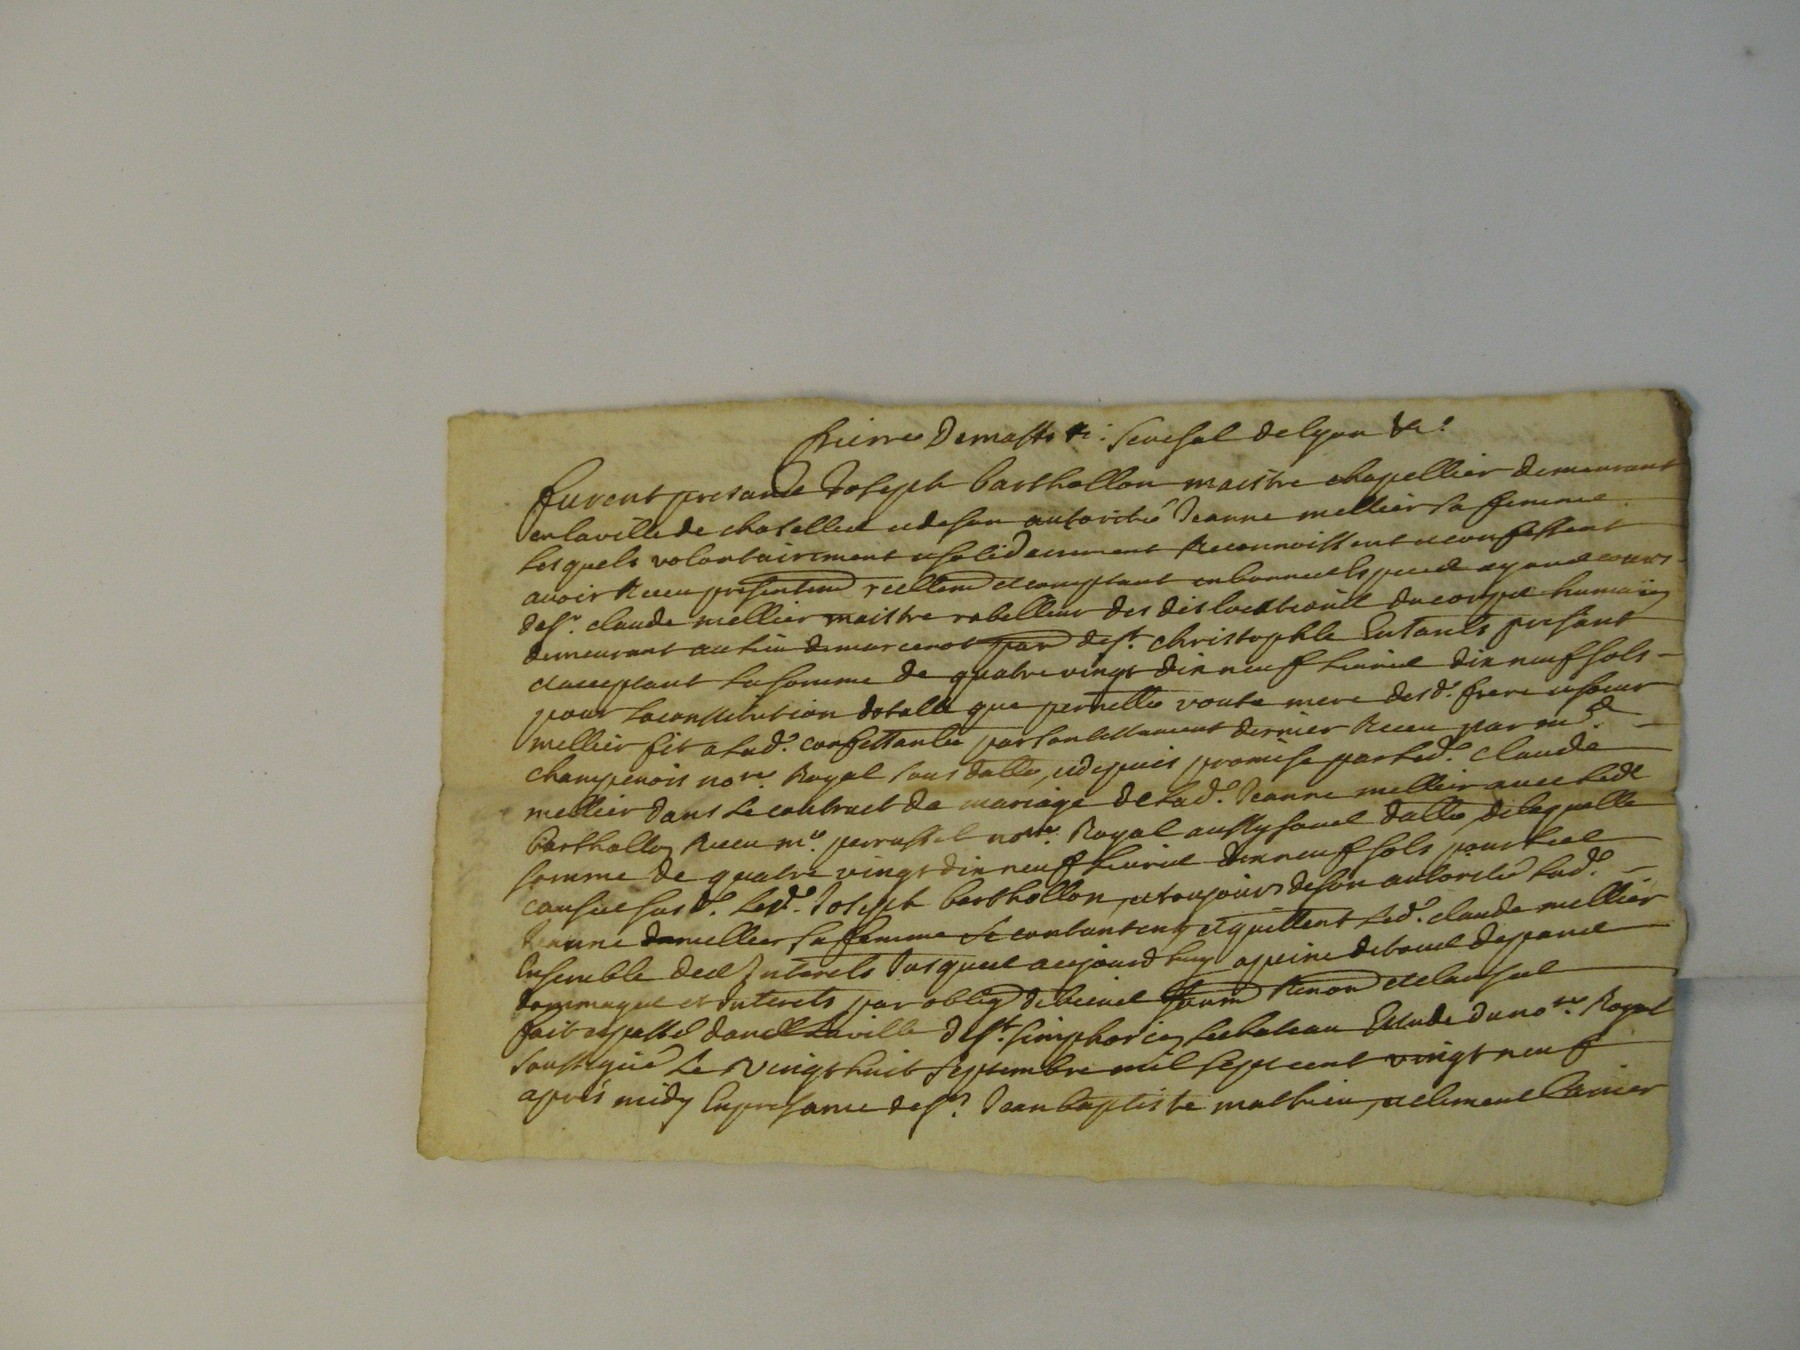 Pierre Demasso &c: Seneschal de lyon &c.
furent presants Joseph barthollon maistre chapellier demeurant
en la ville de chasellee et de son autorité Jeanne mellier sa femme
Lesquels volontairement et solidairement Reconnoissent et confessent
avoir Receu presentem reellem et comptant en bonnes espece ayant cours
de sr. claude mellier maistre rabelleur des dislocations du corps humain
demeurant au lieu de marcenot par de st. christophle Em Jarets present
et acceptant La somme de quatre vingt dix neuf Livres dix neuf sols
pour La constitution dotalle que pernette voute mere desd. frere et soeur
mellier fit a Lad. confessante par son testament dernier Receu par me
champenois nore. Royal sous datte, et depuis promise par Led. claude
mellier dans Le contract de mariage de Lad. Jeanne mellier avec Led
barthollon Receu me. perrussel nore. Royal aussy sous datte, de laquelle
somme de quatre vingt dix neuf Livres dix neuf sols pour Les
causes susd. Led. Joseph barthollon, et toujours de son autorité Lad.
Jeanne mellier sa femme se contantent et quittent Led. claude mellier
Ensemble des Interets Jusques aujourd huy a peine de tous despens
dommages et Interets par oblig de biens soum Renon et clauses
fait et passé dans La ville de st. simphorien Le chateau Estude du nore. Royal
soussigné Le vingt huit septembre mil sept cent vingt neuf
aprés midy En presance de sr. Jean baptiste mathieu, et clement